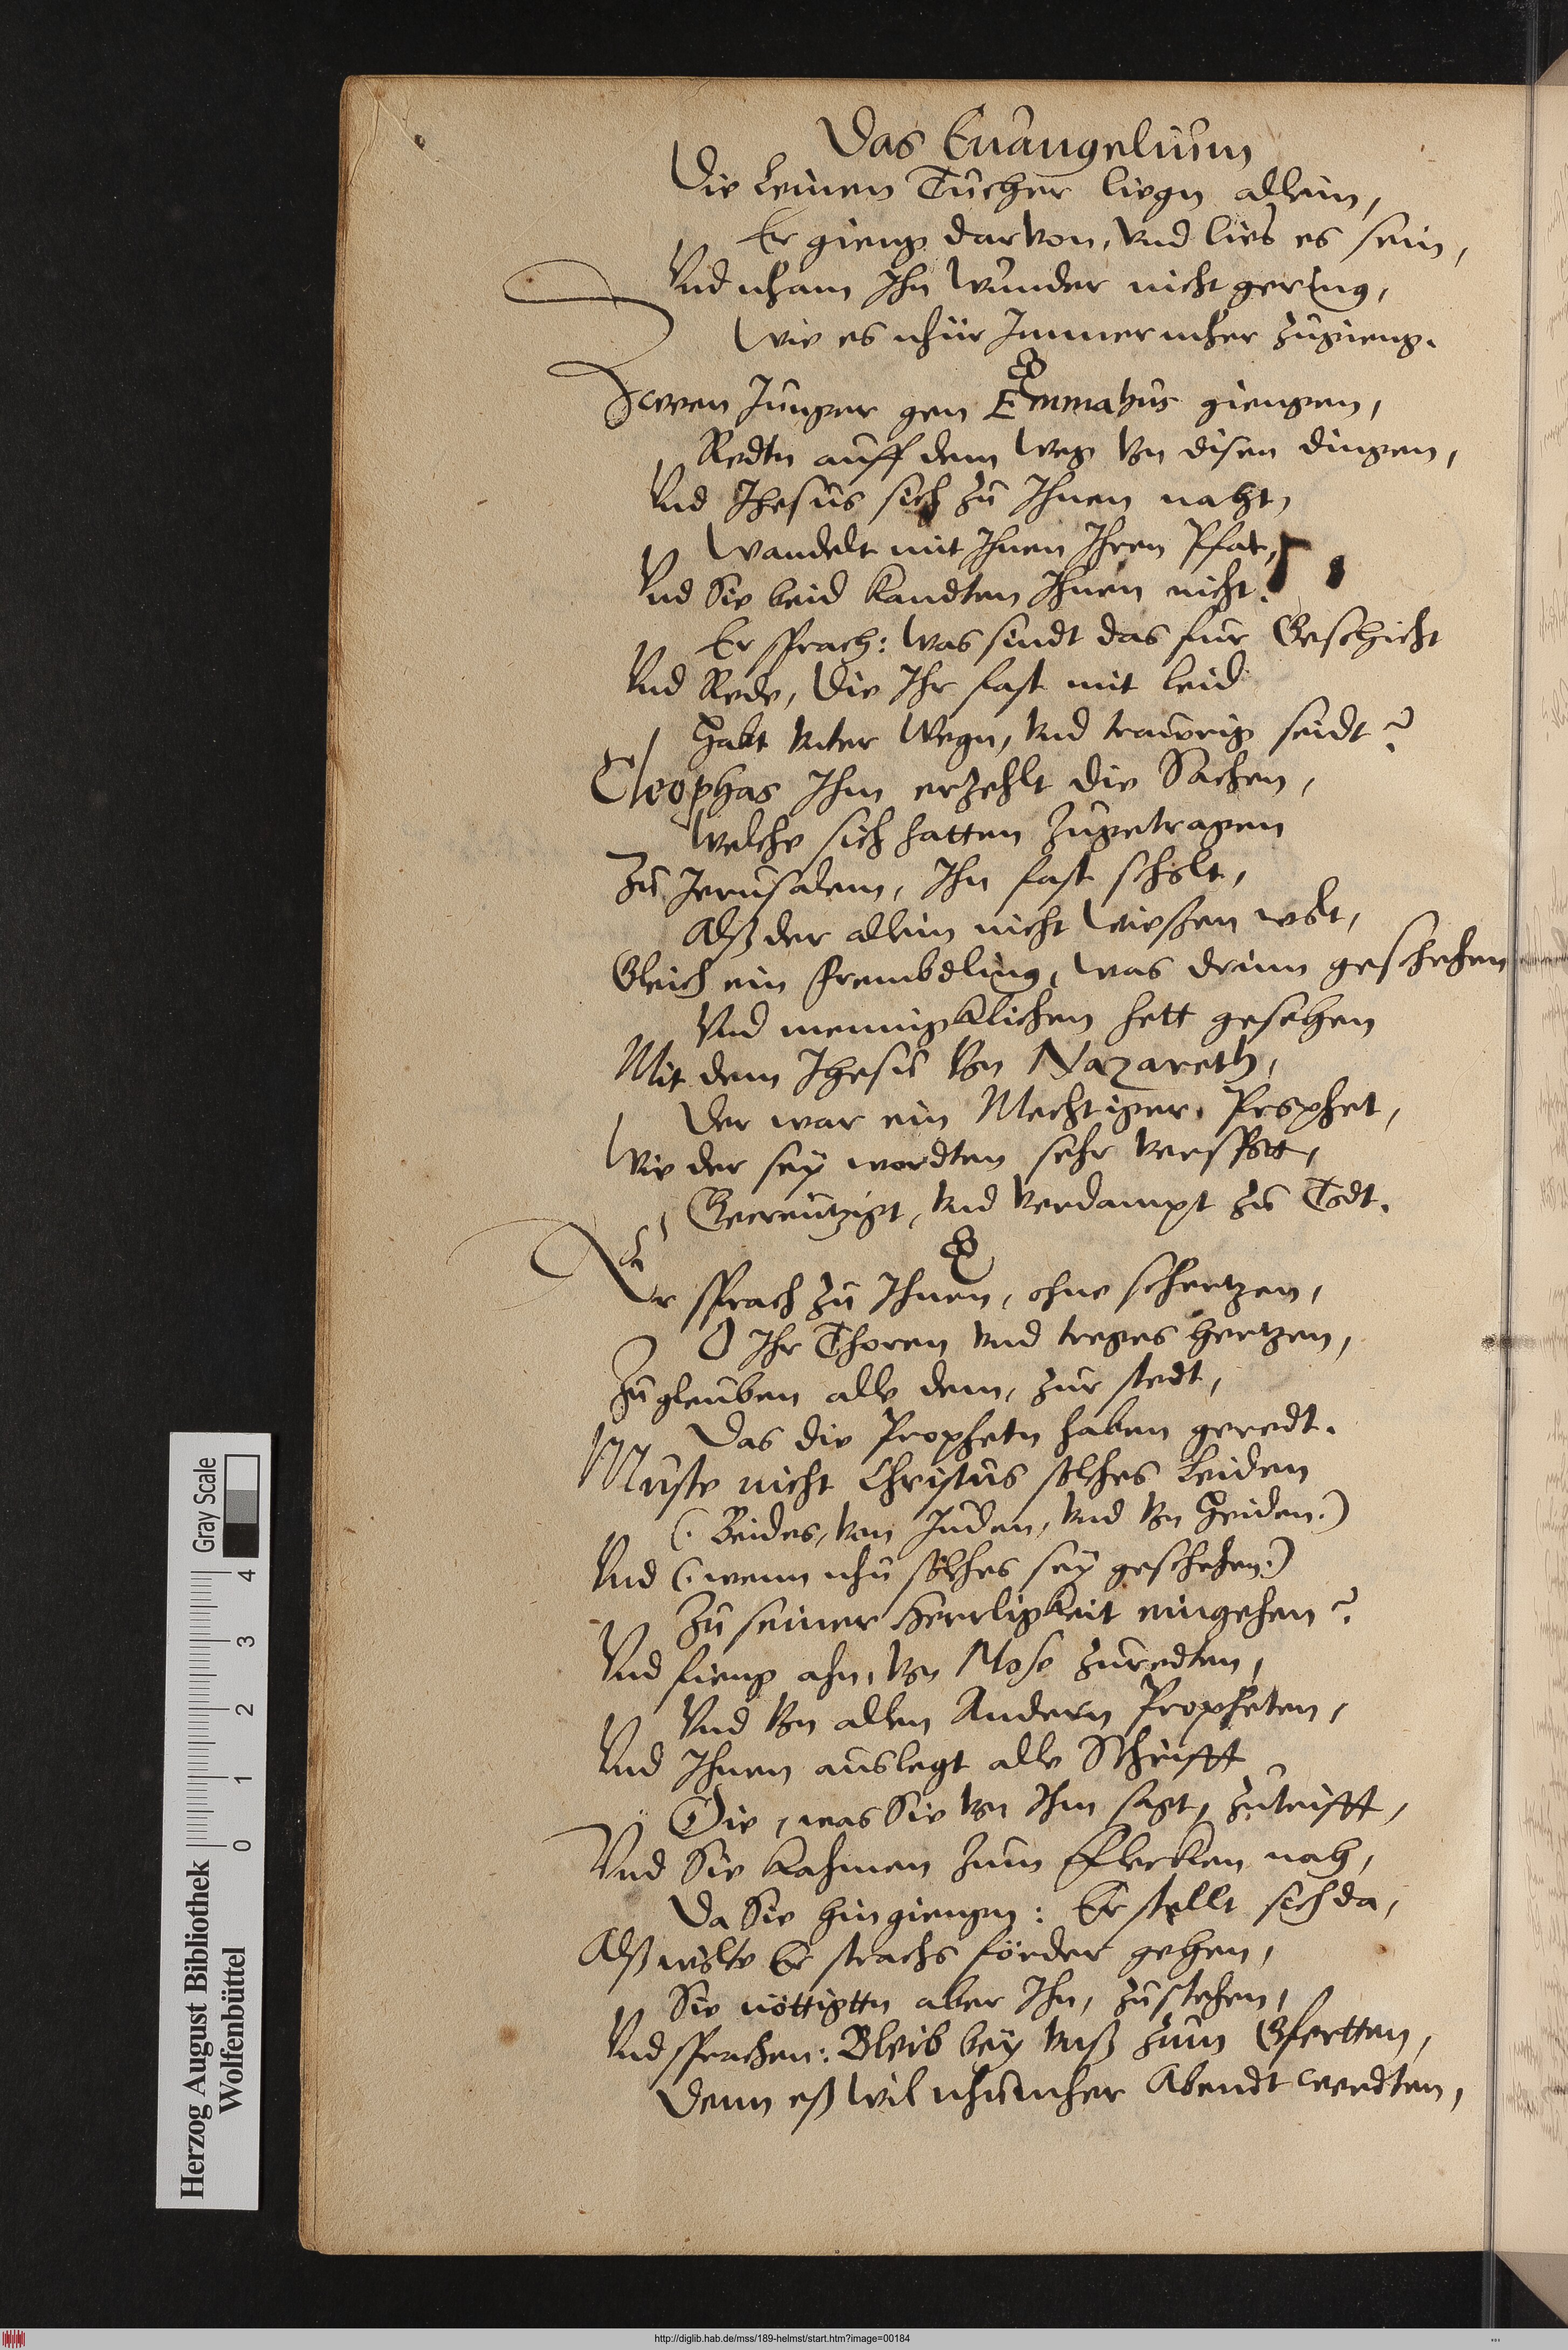 Das Euangelium
Die Leinen Tücher liegn allein,
Er gieng darvon, vnd lies es sein,
Vnd nham Ihn Wunder nicht gering,
Wie es nhür Immer mher zugieng.
Zween Junger gen Emmahus giengen,
Redtn auff dem Weg von disen dingen,
Vnd Jhesus sich zu Ihnen naht,
Wandelt mit Ihnen Ihren Pfat,
Vnd Sie beid kandten Ihnen nicht.
Er sprach: Was sindt das fur Geschicht
Vnd Rede, Die Ihr fast mit leid
Habt vnter Wegn, vnd traurig seidt?
Cleophas Ihm erzehlt die Sachen,
Welche sich hatten zugetragen
Zu Jerusalem, Ihn fast scholt,
Alß der allein nicht Wießen wolt,
Gleich ein frembdling, was drinn geschehen
Vnd mennigklichen hett gesehen
Mit dem Jhesu von Nazareth,
Der war ein Mechtiger Prophet,
Wie der sey wordten sehr verspott,
Gecreutzigt, vnd verdampt zu Todt.
Er sprach zu Ihnen, ohne schertzen,
O Ihr Thoren vnd treges hertzen,
Zu gleuben alle dem, zur stedt,
Das die Prophetn haben geredt.
Muste nicht Christus solches Leiden
(. Beides, von Juden, vnd von Heiden.)
Vnd (. wenn nhu solches sey geschehen.)
Zu seiner Herrligkeit eingehen?
Vnd fieng ahn, von Mose zuredten,
Vnd von allen Andern Propheten,
Vnd Ihnen auslegt alle Schrifft
Die, was Sie von Ihm sagt, zutrifft,
Vnd Sie kahmen zum Flecken nah,
Da Sie hin giengen: Er stellt sich da,
Alß wolte Er strachs förder gehen,
Sie nöttigtn aber Ihn, zustehen,
Vnd sprachen: Bleib bey vnß zum Gfertten,
Denn eß wil nhumher Abendt werdten,
Herzog August Bibliothek
Wolfenbüttel
0 1 2 3 4
Gray Scale
http://diglib.hab.de/mss/189-helmst/start.htm?image=00184